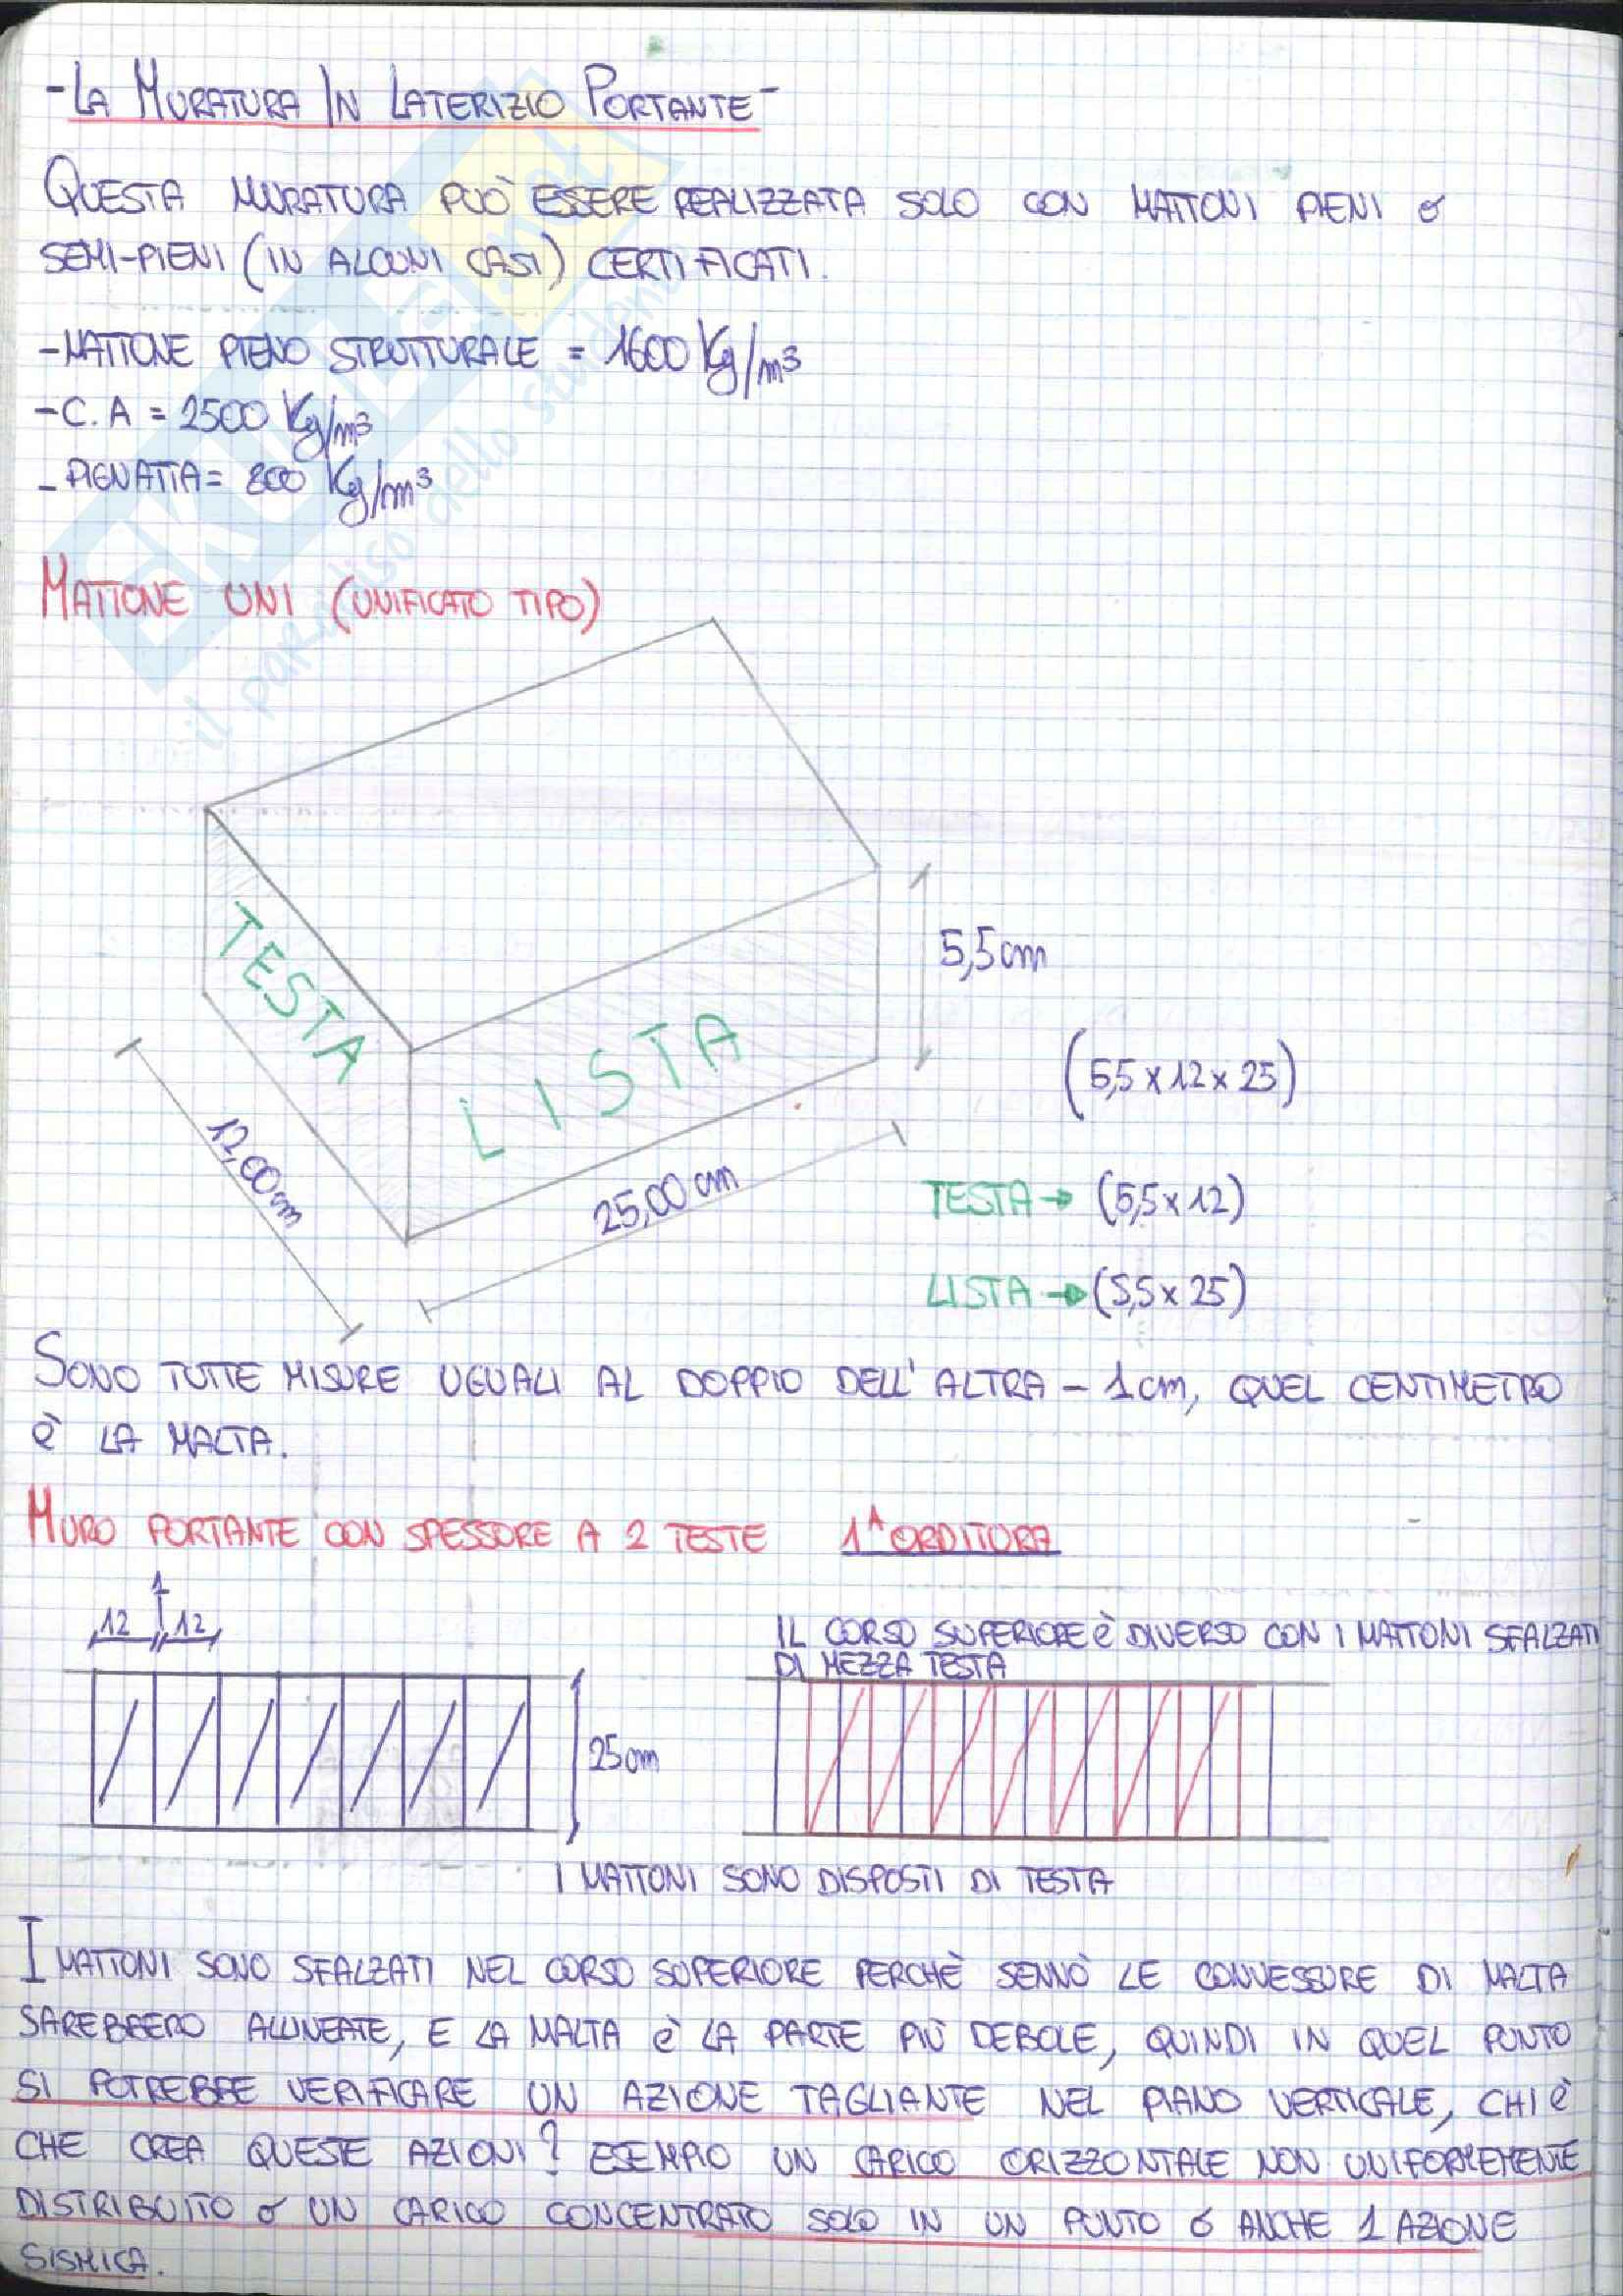 -LA MURATURA IN LATERIZIO PORTANTE-
QUESTA MURATURA PUÒ ESSERE REALIZZATA SOLO CON MATTONI PIENI O
SEMI-PIENI (IN ALCUNI CASI) CERTIFICATI.
-MATTONE PIENO STRUTTURALE = 1600 Kg/m³
-C.A = 2500 Kg/m³
-PIGNATTA = 800 Kg/m³
MATTONE UNI (UNIFICATO TIPO)
TESTA
LISTA
5,5cm
12,00cm
25,00 cm
(5,5 x 12 x 25)
TESTA → (5,5 x 12)
LISTA → (5,5 x 25)
SONO TUTTE MISURE UGUALI AL DOPPIO DELL'ALTRA - 1cm, QUEL CENTIMETRO
È LA MALTA.
MURO PORTANTE CON SPESSORE A 2 TESTE 1ᴬ ORDITURA
1
12 12
25cm
IL CORSO SUPERIORE È DIVERSO CON I MATTONI SFALZATI
DI MEZZA TESTA
I MATTONI SONO DISPOSTI DI TESTA
I MATTONI SONO SFALZATI NEL CORSO SUPERIORE PERCHÈ SENNÒ LE CONNESSURE DI MALTA
SAREBBERO ALLINEATE, E LA MALTA È LA PARTE PIÙ DEBOLE, QUINDI IN QUEL PUNTO
SI POTREBBE VERIFICARE UN AZIONE TAGLIANTE NEL PIANO VERTICALE, CHI È
CHE CREA QUESTE AZIONI? ESEMPIO UN CARICO ORIZZONTALE NON UNIFORMEMENTE
DISTRIBUITO O UN CARICO CONCENTRATO SOLO IN UN PUNTO O ANCHE 1 AZIONE
SISMICA.
SKUOLA.net
il paradiso dello studente